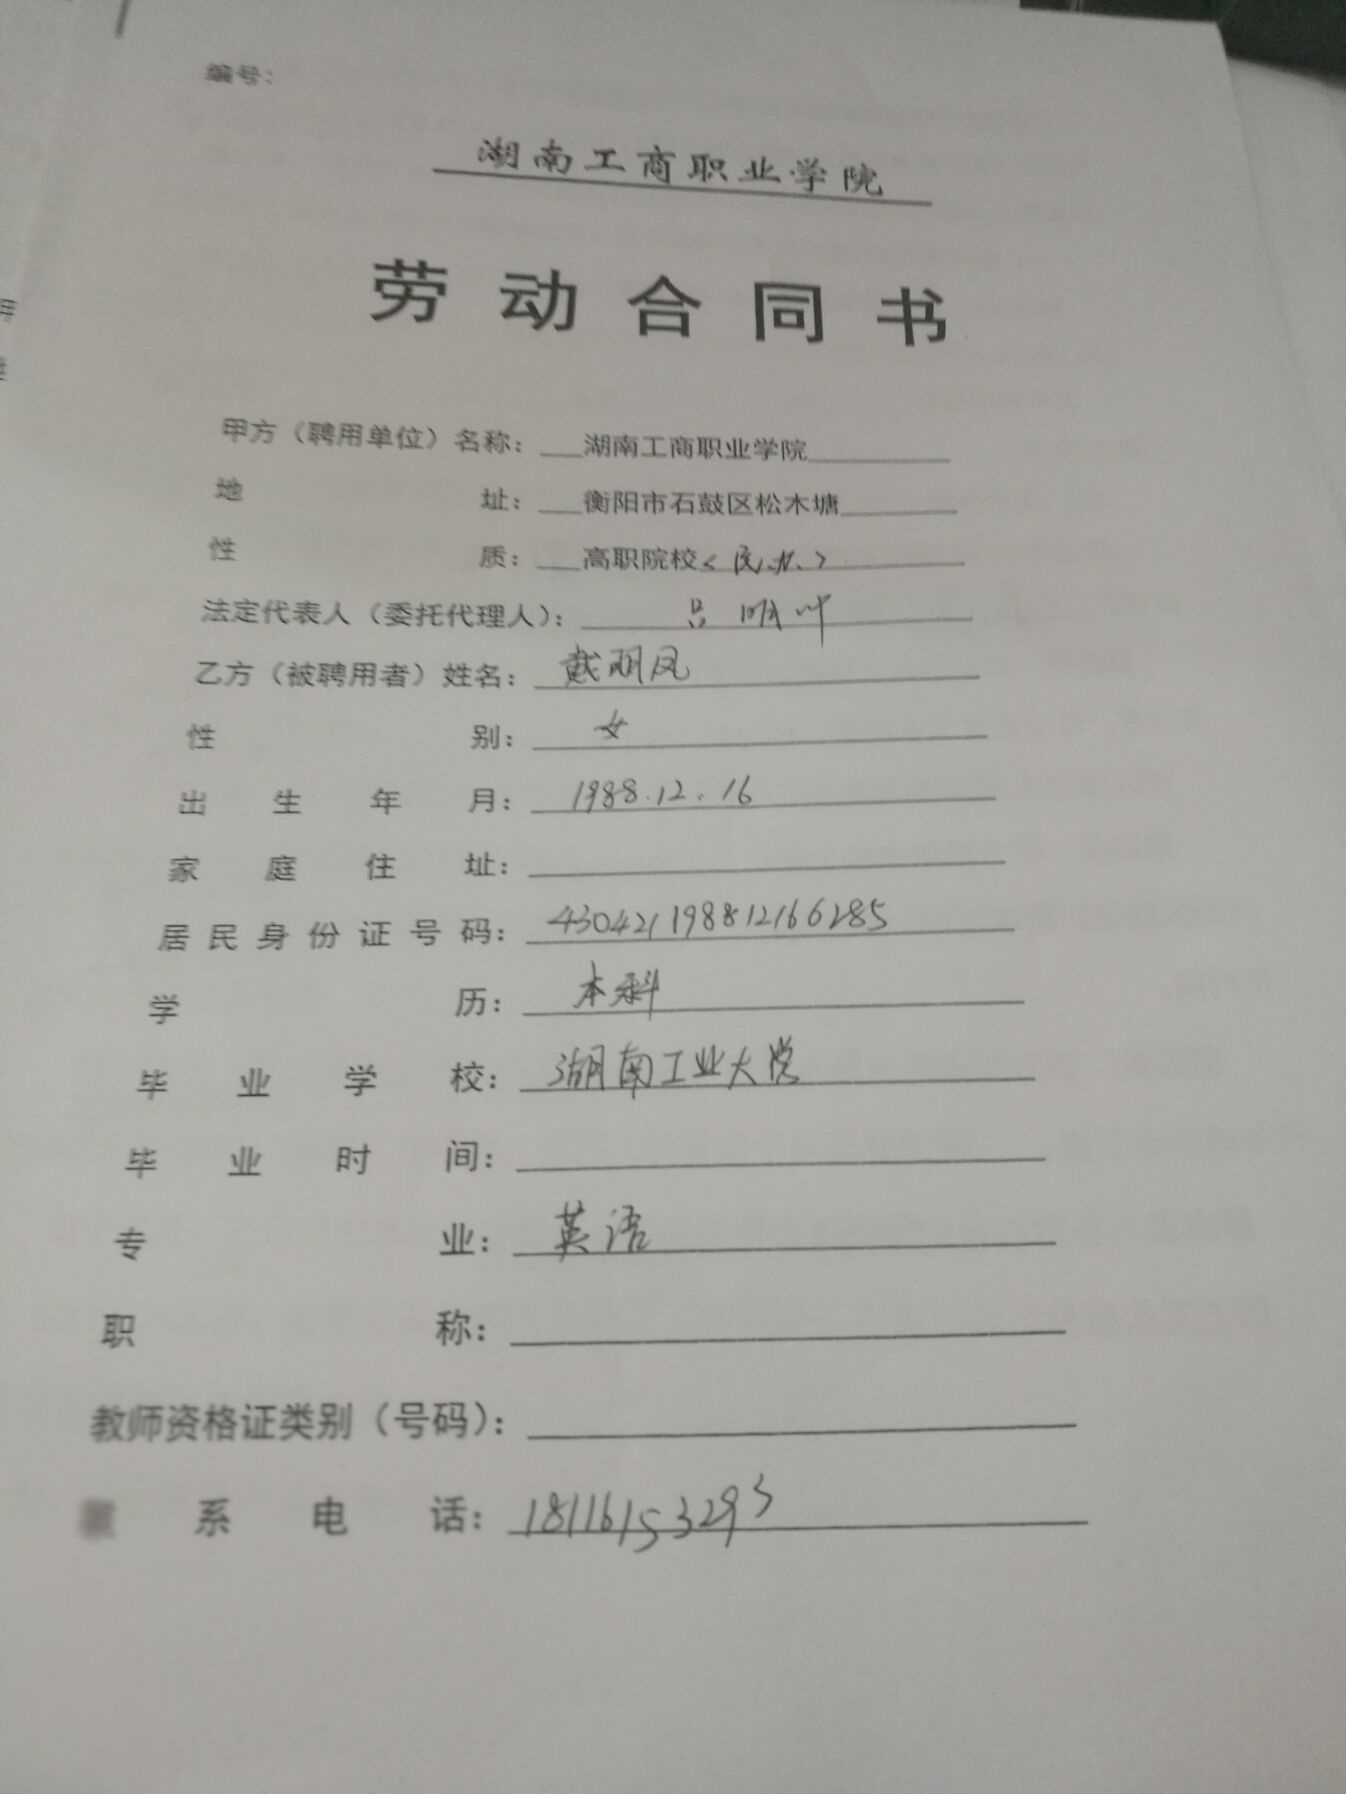 编号：
湖南工商职业学院
劳动合同书
甲方（聘用单位）名称：湖南工商职业学院
地址：衡阳市石鼓区松木塘
性质：高职院校<民办>
法定代表人（委托代理人）：吕明叶
乙方（被聘用者）姓名：戴丽凤
性别：女
出生年月：1988.12.16
家庭住址：
居民身份证号码：430421198812166285
学历：本科
毕业学校：湖南工业大学
毕业时间：
专业：英语
职称：
教师资格证类别（号码）：
系电话：18116153293